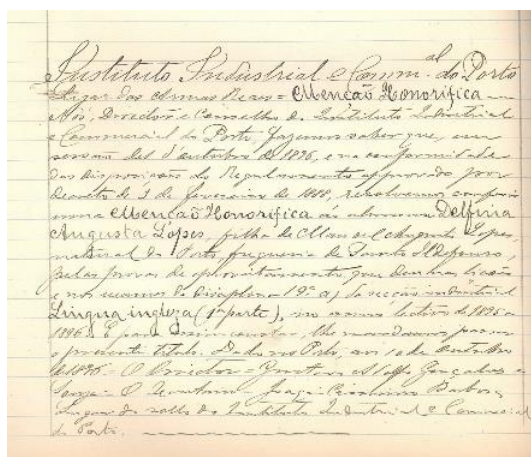 Instituto Industrial e Comm.al do Porto
Lugar das Armas Reaes = Menção Honorifica =
Nós, Director e Conselho do Instituto Industrial
e Commercial do Porto fazemos saber que, em
sessão de 1 d'outubro de 1896, e na conformidade
das disposições do Regulamento approvado por
decreto de 3 de fevereiro de 1888, resolvemos conferir
uma Menção Honorifica á alumna Delfina
Augusta Lópes, filha de Manoel Augusto Lopes,
natural do Porto, freguesia de Santo Ildefonso,
pelas provas de aproveitamento que deu nas lições
e nos exames da disciplina 19ª a) da secção industrial
Lingua ingleza (1ª parte), no anno lectivo de 1895 a
1896. E para assim constar, lhe mandamos passar
o presente titulo. Dado no Porto, em 10 de outubro
de 1896 - O Director = Gustavo Adolfo Gonçalves e
Sousa - O Secretario Barbosa
Lugar do sello do Instituto Industrial e Comercial
do Porto.